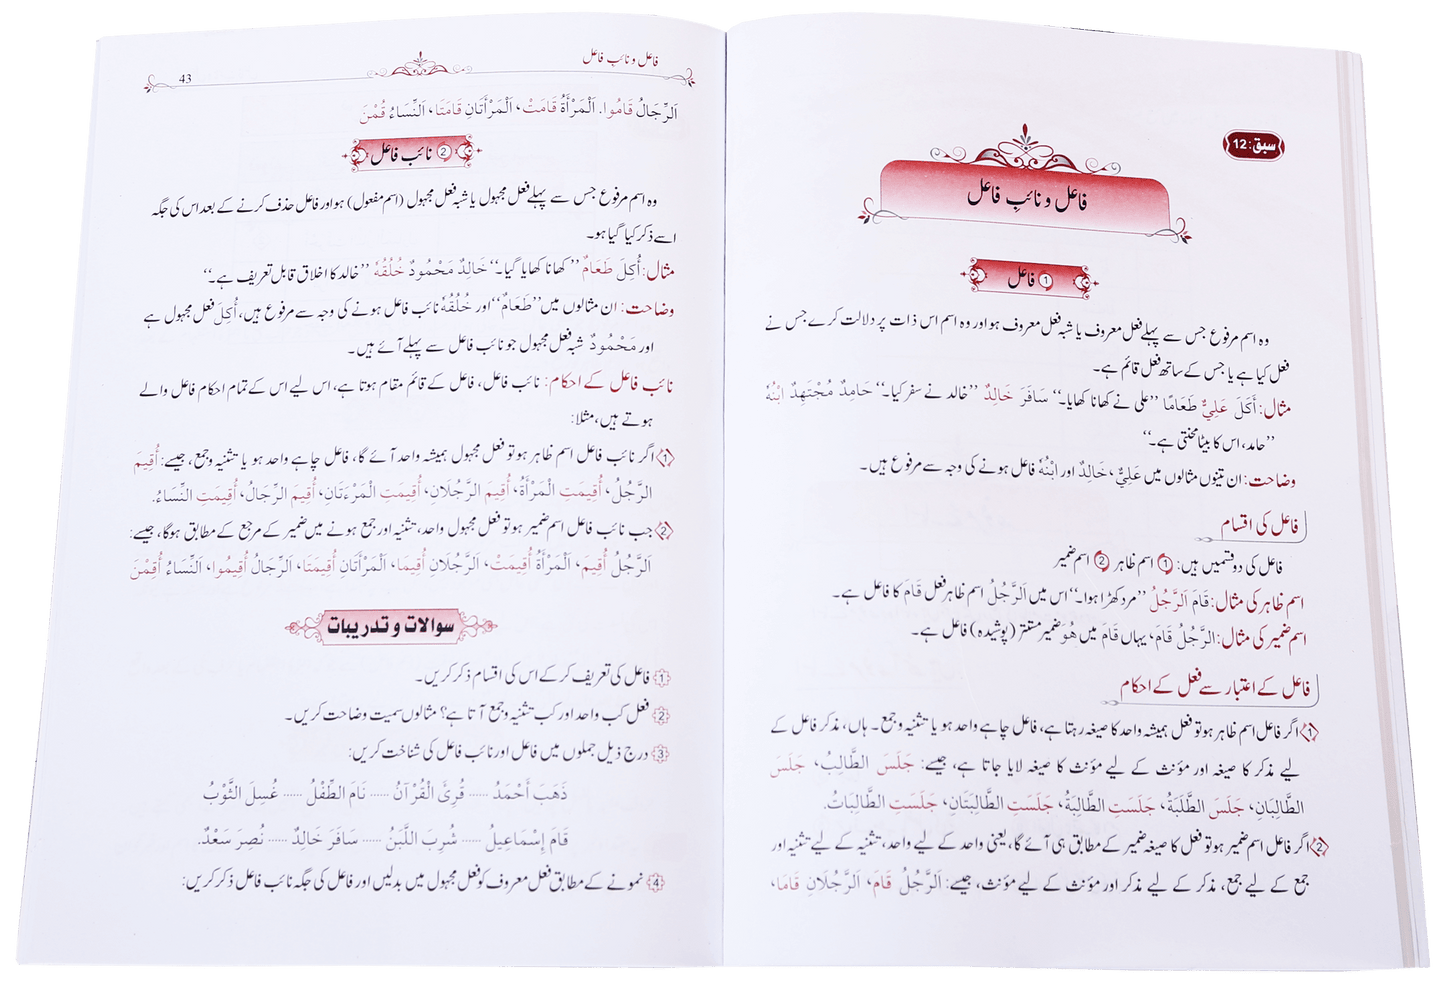 سبق: 12
فاعل و نائبِ فاعل
1 فاعل
وہ اسم مرفوع جس سے پہلے فعل معروف یا شبہ فعل معروف ہو اور وہ اسم اس ذات پر دلالت کرے جس نے
فعل کیا ہے یا جس کے ساتھ فعل قائم ہے۔
مثال: أَكَلَ عَلِيٌّ طَعَامًا ”علی نے کھانا کھایا۔“ سَافَرَ خَالِدٌ ”خالد نے سفر کیا۔“ حَامِدٌ مُجْتَهِدٌ ابْنُهُ
”حامد، اس کا بیٹا محنتی ہے۔“
وضاحت: ان تینوں مثالوں میں عَلِيٌّ، خَالِدٌ اور ابْنُهُ فاعل ہونے کی وجہ سے مرفوع ہیں۔
فاعل کی اقسام
فاعل کی دو قسمیں ہیں: 1 اسم ظاہر 2 اسم ضمیر
اسم ظاہر کی مثال: قَامَ اَلرَّجُلُ ”مرد کھڑا ہوا۔“ اس میں اَلرَّجُلُ اسم ظاہر فعل قَامَ کا فاعل ہے۔
اسم ضمیر کی مثال: اَلرَّجُلُ قَامَ، یہاں قَامَ میں هُوَ ضمیر مستتر (پوشیدہ) فاعل ہے۔
فاعل کے اعتبار سے فعل کے احکام
1 اگر فاعل اسم ظاہر ہو تو فعل ہمیشہ واحد کا صیغہ رہتا ہے، فاعل چاہے واحد ہو یا تثنیہ و جمع۔ ہاں، مذکر فاعل کے
لیے مذکر کا صیغہ اور مؤنث کے لیے مؤنث کا صیغہ لایا جاتا ہے، جیسے: جَلَسَ الطَّالِبُ، جَلَسَ
الطَّالِبَانِ، جَلَسَ الطَّلَبَةُ، جَلَسَتِ الطَّالِبَةُ، جَلَسَتِ الطَّالِبَتَانِ، جَلَسَتِ الطَّالِبَاتُ.
2 اگر فاعل اسم ضمیر ہو تو فعل کا صیغہ ضمیر کے مطابق ہی آئے گا، یعنی واحد کے لیے واحد، تثنیہ کے لیے تثنیہ اور
جمع کے لیے جمع، مذکر کے لیے مذکر اور مؤنث کے لیے مؤنث، جیسے: اَلرَّجُلُ قَامَ، اَلرَّجُلَانِ قَامَا،
فاعل و نائب فاعل
43
اَلرِّجَالُ قَامُوا. اَلْمَرْأَةُ قَامَتْ، اَلْمَرْأَتَانِ قَامَتَا، اَلنِّسَاءُ قُمْنَ
2 نائب فاعل
وہ اسم مرفوع جس سے پہلے فعل مجہول یا شبہ فعل مجہول (اسم مفعول) ہو اور فاعل حذف کرنے کے بعد اس کی جگہ
اسے ذکر کیا گیا ہو۔
مثال: أُكِلَ طَعَامٌ ”کھانا کھایا گیا۔“ خَالِدٌ مَحْمُودٌ خُلُقُهُ ”خالد کا اخلاق قابل تعریف ہے۔“
وضاحت: ان مثالوں میں ”طَعَامٌ“ اور خُلُقُهُ نائب فاعل ہونے کی وجہ سے مرفوع ہیں، أُكِلَ فعل مجہول ہے
اور مَحْمُودٌ شبہ فعل مجہول جو نائب فاعل سے پہلے آئے ہیں۔
نائب فاعل کے احکام: نائب فاعل، فاعل کے قائم مقام ہوتا ہے، اس لیے اس کے تمام احکام فاعل والے
ہوتے ہیں، مثلا:
1 اگر نائب فاعل اسم ظاہر ہو تو فعل مجہول ہمیشہ واحد آئے گا، فاعل چاہے واحد ہو یا تثنیہ و جمع، جیسے: أُقِيمَ
الرَّجُلُ، أُقِيمَتِ الْمَرْأَةُ، أُقِيمَ الرَّجُلَانِ، أُقِيمَتِ الْمَرْءَتَانِ، أُقِيمَ الرِّجَالُ، أُقِيمَتِ النِّسَاءُ.
2 جب نائب فاعل اسم ضمیر ہو تو فعل مجہول واحد، تثنیہ اور جمع ہونے میں ضمیر کے مرجع کے مطابق ہوگا، جیسے:
اَلرَّجُلُ أُقِيمَ، اَلْمَرْأَةُ أُقِيمَتْ، اَلرَّجُلَانِ أُقِيمَا، اَلْمَرْأَتَانِ أُقِيمَتَا، اَلرِّجَالُ أُقِيمُوا، اَلنِّسَاءُ أُقِمْنَ
سوالات و تدریبات
1 فاعل کی تعریف کر کے اس کی اقسام ذکر کریں۔
2 فعل کب واحد اور کب تثنیہ و جمع آتا ہے؟ مثالوں سمیت وضاحت کریں۔
3 درج ذیل جملوں میں فاعل اور نائب فاعل کی شناخت کریں:
ذَهَبَ أَحْمَدُ ...... قُرِئَ الْقُرْآنُ ...... نَامَ الطِّفْلُ ...... غُسِلَ الثَّوْبُ
قَامَ إِسْمَاعِيلُ ...... شُرِبَ اللَّبَنُ ...... سَافَرَ خَالِدٌ ...... نُصِرَ سَعْدٌ.
4 نمونے کے مطابق فعل معروف کو فعل مجہول میں بدلیں اور فاعل کی جگہ نائب فاعل ذکر کریں: